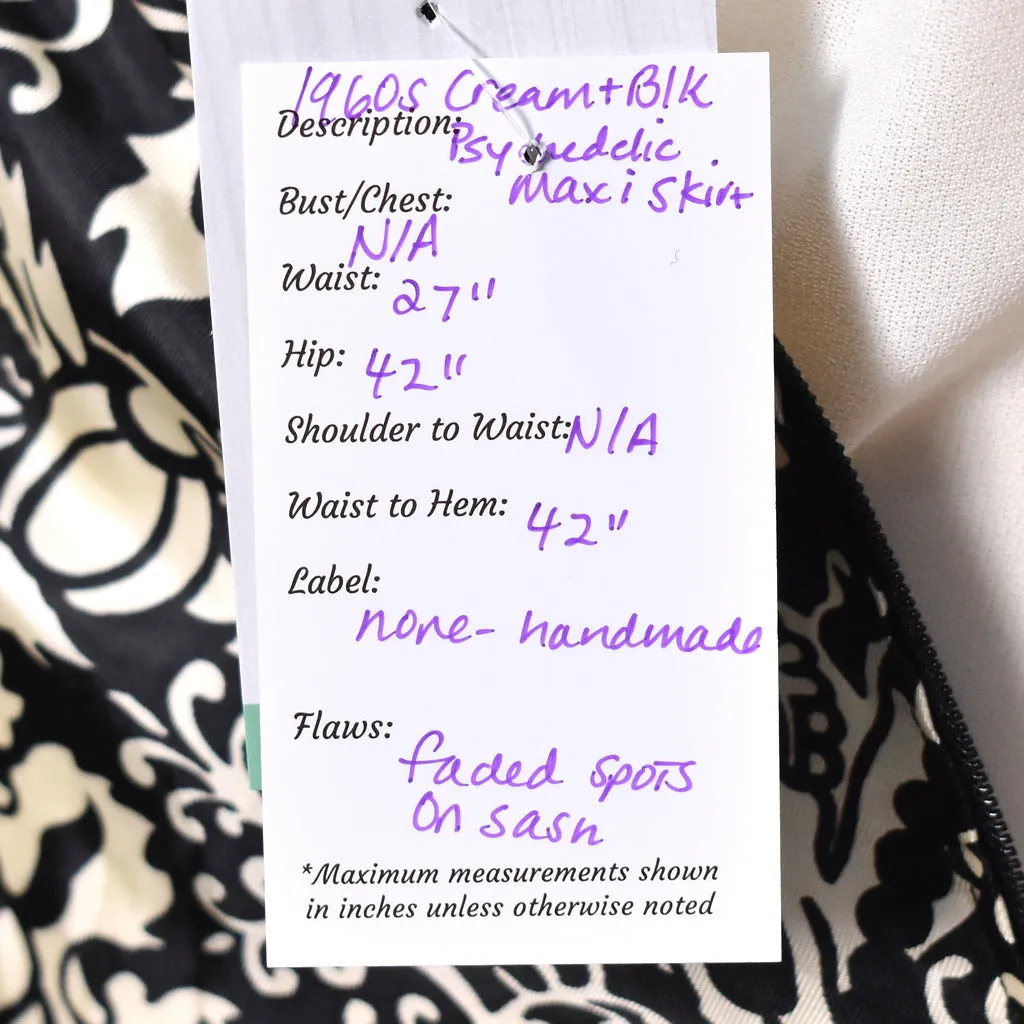 1960s Cream + Blk
Description: Psychedelic
Maxi Skirt
Bust/Chest:
N/A
Waist: 27"
Hip: 42"
Shoulder to Waist: N/A
Waist to Hem: 42"
Label:
none - handmade
Flaws:
faded spots
on sash
*Maximum measurements shown
in inches unless otherwise noted